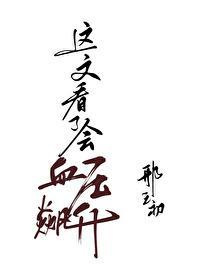 这文看了会
血压飙升
邢玉初